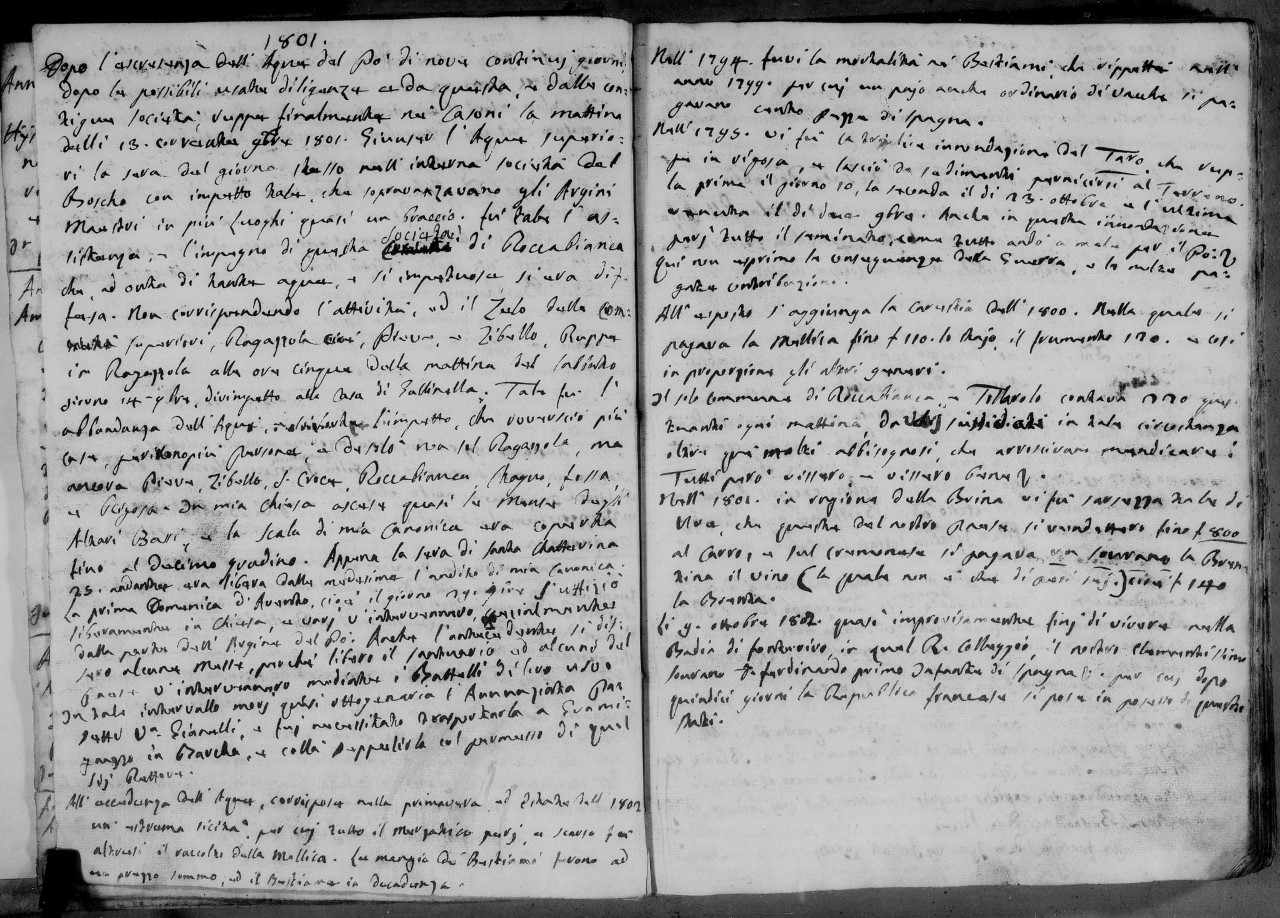 1801.
Dopo l'escrescenza dell'Aque del Po' di nove continuj giorni,
dopo le possibili usate diligenze e da questa, e dalla con-
tigua società, ruppe finalmente ne' Casoni la mattina
delli 13. corrente 9bre 1801. Giunser l'Aque superio-
ri la sera del giorno stesso nell'interna società del
Boscho con impetto tale, che sopravanzavano gli Argini
Maestri in più Luoghi quasi un braccio. fu' tale l'as-
sistenza, e l'impegno di questa società di Roccabianca
che, ad onta di tante aque, e si impetuose si era dif-
fesa. Non corrispondendo l'attività, ed il Zelo delle Com-
superiori, Ragazzola cioè, Pieve, e Zibello, Ruppe
in Ragazzola alle ore cinque della mattina del sabbato
giorno 14 9bre, dirimpetto alla Casa di Gallinella. Tale fu l'
abbondanza dell'Aque, e l'impetto, che rovesciò più
case, perirono più persone, e desolò non sol Ragazzola, ma
ancora Pieve, Zibello, S. Croce, Roccabianca, Stagno, fossa,
e Rigosa. In mia chiesa ascese quasi le Mense degli
Altari Bassi, e la scala di mia Canonica era coperta
fino al decimo gradino. Appena la sera di santa Chatterina
25. andante era libera dalle medesime l'andito di mia Canonica.
La prima Domenica di Avvento, cioè il giorno 29. 9bre s'uffizio
liberamente in Chiesa, e varj v'intervennero, specialmente
dalla parte dell'Argine del Po. Anche l'antecedente si dis-
sero alcune Messe, perché libero il santuario ed alcuni del
Paese v'intervennero mediante i Battelli di loro uso.
In tale intervallo morj quasi ottogenaria l'Annunziata
detta Va. Gianelli, e fuj necessitato trasportarla a
in Barcha, e collà seppelirla col permesso di quel
Sig. Rettore.
All'eccedenza dell'Aque, corrispose nella primavera, ed Estate dell'1802
un'estrema siccità, per cuj tutto il Marzatico perj, e scarso fu
altresì il raccolto della Mellica. Le mangie de' Bestiami furono ad
un prezzo sommo, ed il Bestiame in decadenza.
Nell'1794. fuvi la mortalità ne' Bestiami, che rippettè nell'
anno 1799. per cuj un pajo anche ordinario di Vacche si pa-
gavano cento pezze di spagna.
Nell'1795. vi fu la triplice innondazione del Taro, che rup-
pe in rigosa, e lasciò de' sedimenti perniciosi al Terreno.
la prima il giorno 10, la seconda il dì 23. ottobre e l'ultima
il dì due 9bre. Anche in questa innondazione
perj tutto il seminato, come tutto andò a male per il Po.
Qui non esprimo le conseguenze della Guerra, e le molte pa-
gate contribuzioni.
All'esposto s'aggiunga la Carestia dell'1800. Nella quale si
pagava la Mellica fino £ 110. lo stajo, il frumento 170. e così
in proporzione gli altri generi.
Il solo Commune di Roccabianca, e Tolarolo contava 220 ques-
tuanti ogni mattina, in tale circostanza
oltre que' molti abbisognosi, che arrossivano mendicare i
Tutti però vissero, e vissero bene.
Nell'1801. in ragione della Brina vi fu' scarsezza tale di
Uve, che queste del nostro Paese si vendettero fino £ 800
al Carro, e sul cremonese si pagava un souvrano la Bren-
tina il vino (la quale non è che di pesi sej.) cioè £ 140
la Brenta.
Li 9. ottobre 1802. quasi improvisamente finj di vivere nella
Badia di fontevivo, in quel R. Colleggio, il nostro Clementissimo
Sovrano D. ferdinando primo Infante di Spagna. per cuj dopo
quindici giorni la Republica francese si pose in possesso di questi
Stati.